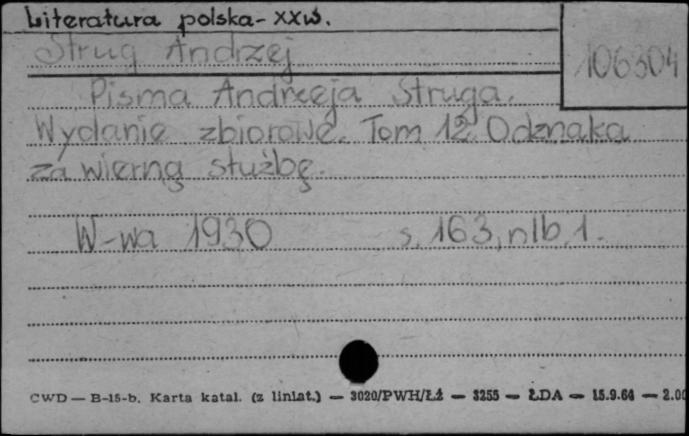 Literatura polska-XXw.
Strug Andrzej
106304
Pisma Andrzeja Struga.
Wydanie zbiorowe. Tom 12. Odznaka
za wierną służbę.
W-wa 1930 s. 163, nlb. 1.
CWD — B-15-b. Karta katal. (z liniat.) — 3020/PWH/Łź — 3255 — ŁDA — 15.9.64 — 2.00